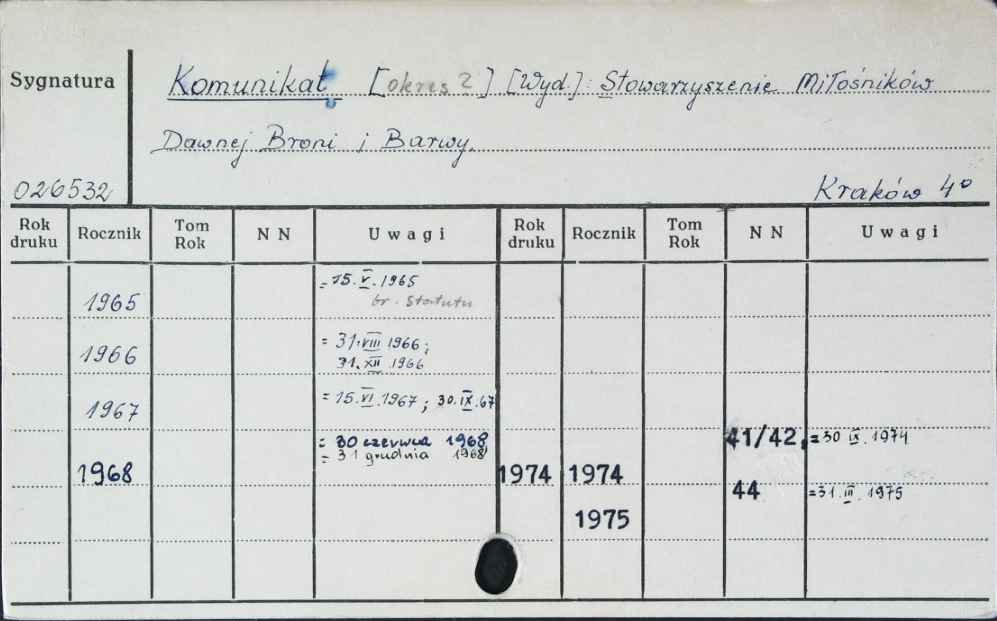 Sygnatura
Komunikat [okres ?] [Wyd.]: Stowarzyszenie Miłośników
Dawnej Broni i Barwy.
026532
Kraków 4°
Rok druku Rocznik Tom Rok N N Uwagi Rok druku Rocznik Tom Rok N N Uwagi
= 15.V.1965
1965 br. Statutu
= 31.VIII 1966;
1966 31.XII 1966
1967 = 15.VI.1967; 30.IX.67
= 30 czerwca 1968 41/42, =30 IX. 1974
= 31 grudnia 1968
1968 1974 1974
44 =31.III. 1975
1975